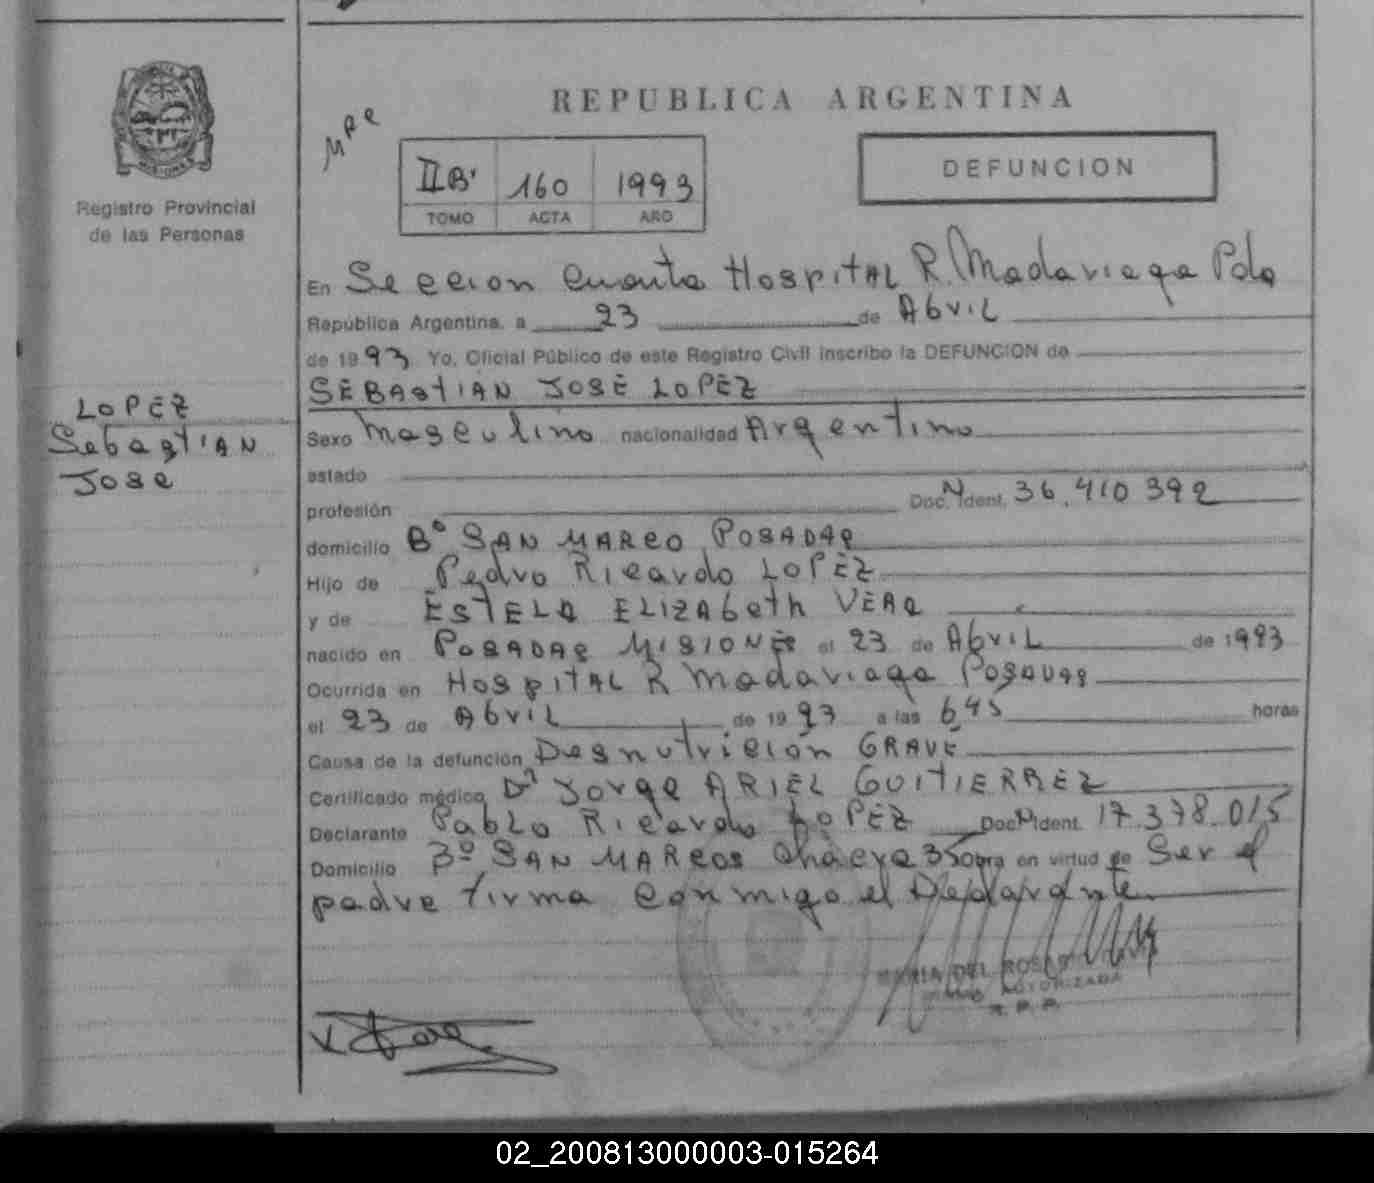 REPUBLICA ARGENTINA
DEFUNCION
IIB' 160 1993
TOMO ACTA AÑO
Registro Provincial
de las Personas
LOPEZ
Sebastian
Jose
En Seccion Cuarta Hospital R. Madariaga Pda
República Argentina, a 23 de Abril
de 1993 Yo, Oficial Público de este Registro Civil inscribo la DEFUNCION de
SEBASTIAN JOSE LOPEZ
Sexo Masculino nacionalidad Argentino
estado
profesión Doc. N Ident. 36.410 392
domicilio Bº SAN MARCO POSADAS
Hijo de Pedro Ricardo LOPEZ
y de ESTELA ELIZAbeth VERA
nacido en POSADAS MISIONES el 23 de Abril de 1993
Ocurrida en Hospital R Madariaga Posadas
el 23 de Abril de 1993 a las 645 horas
Causa de la defunción Desnutrición GRAVE
Certificado médico Dr Jorge ARIEL GUITIERREZ
Declarante Pablo Ricardo LOPEZ Doc. N Ident. 17.378.015
Domicilio Bº SAN MARCOS Chacra 350 obra en virtud de Ser el
padre firma conmigo el Declarante
MARIA DEL ROSARIO
AUTORIZADA
R. P. P.
02_200813000003-015264